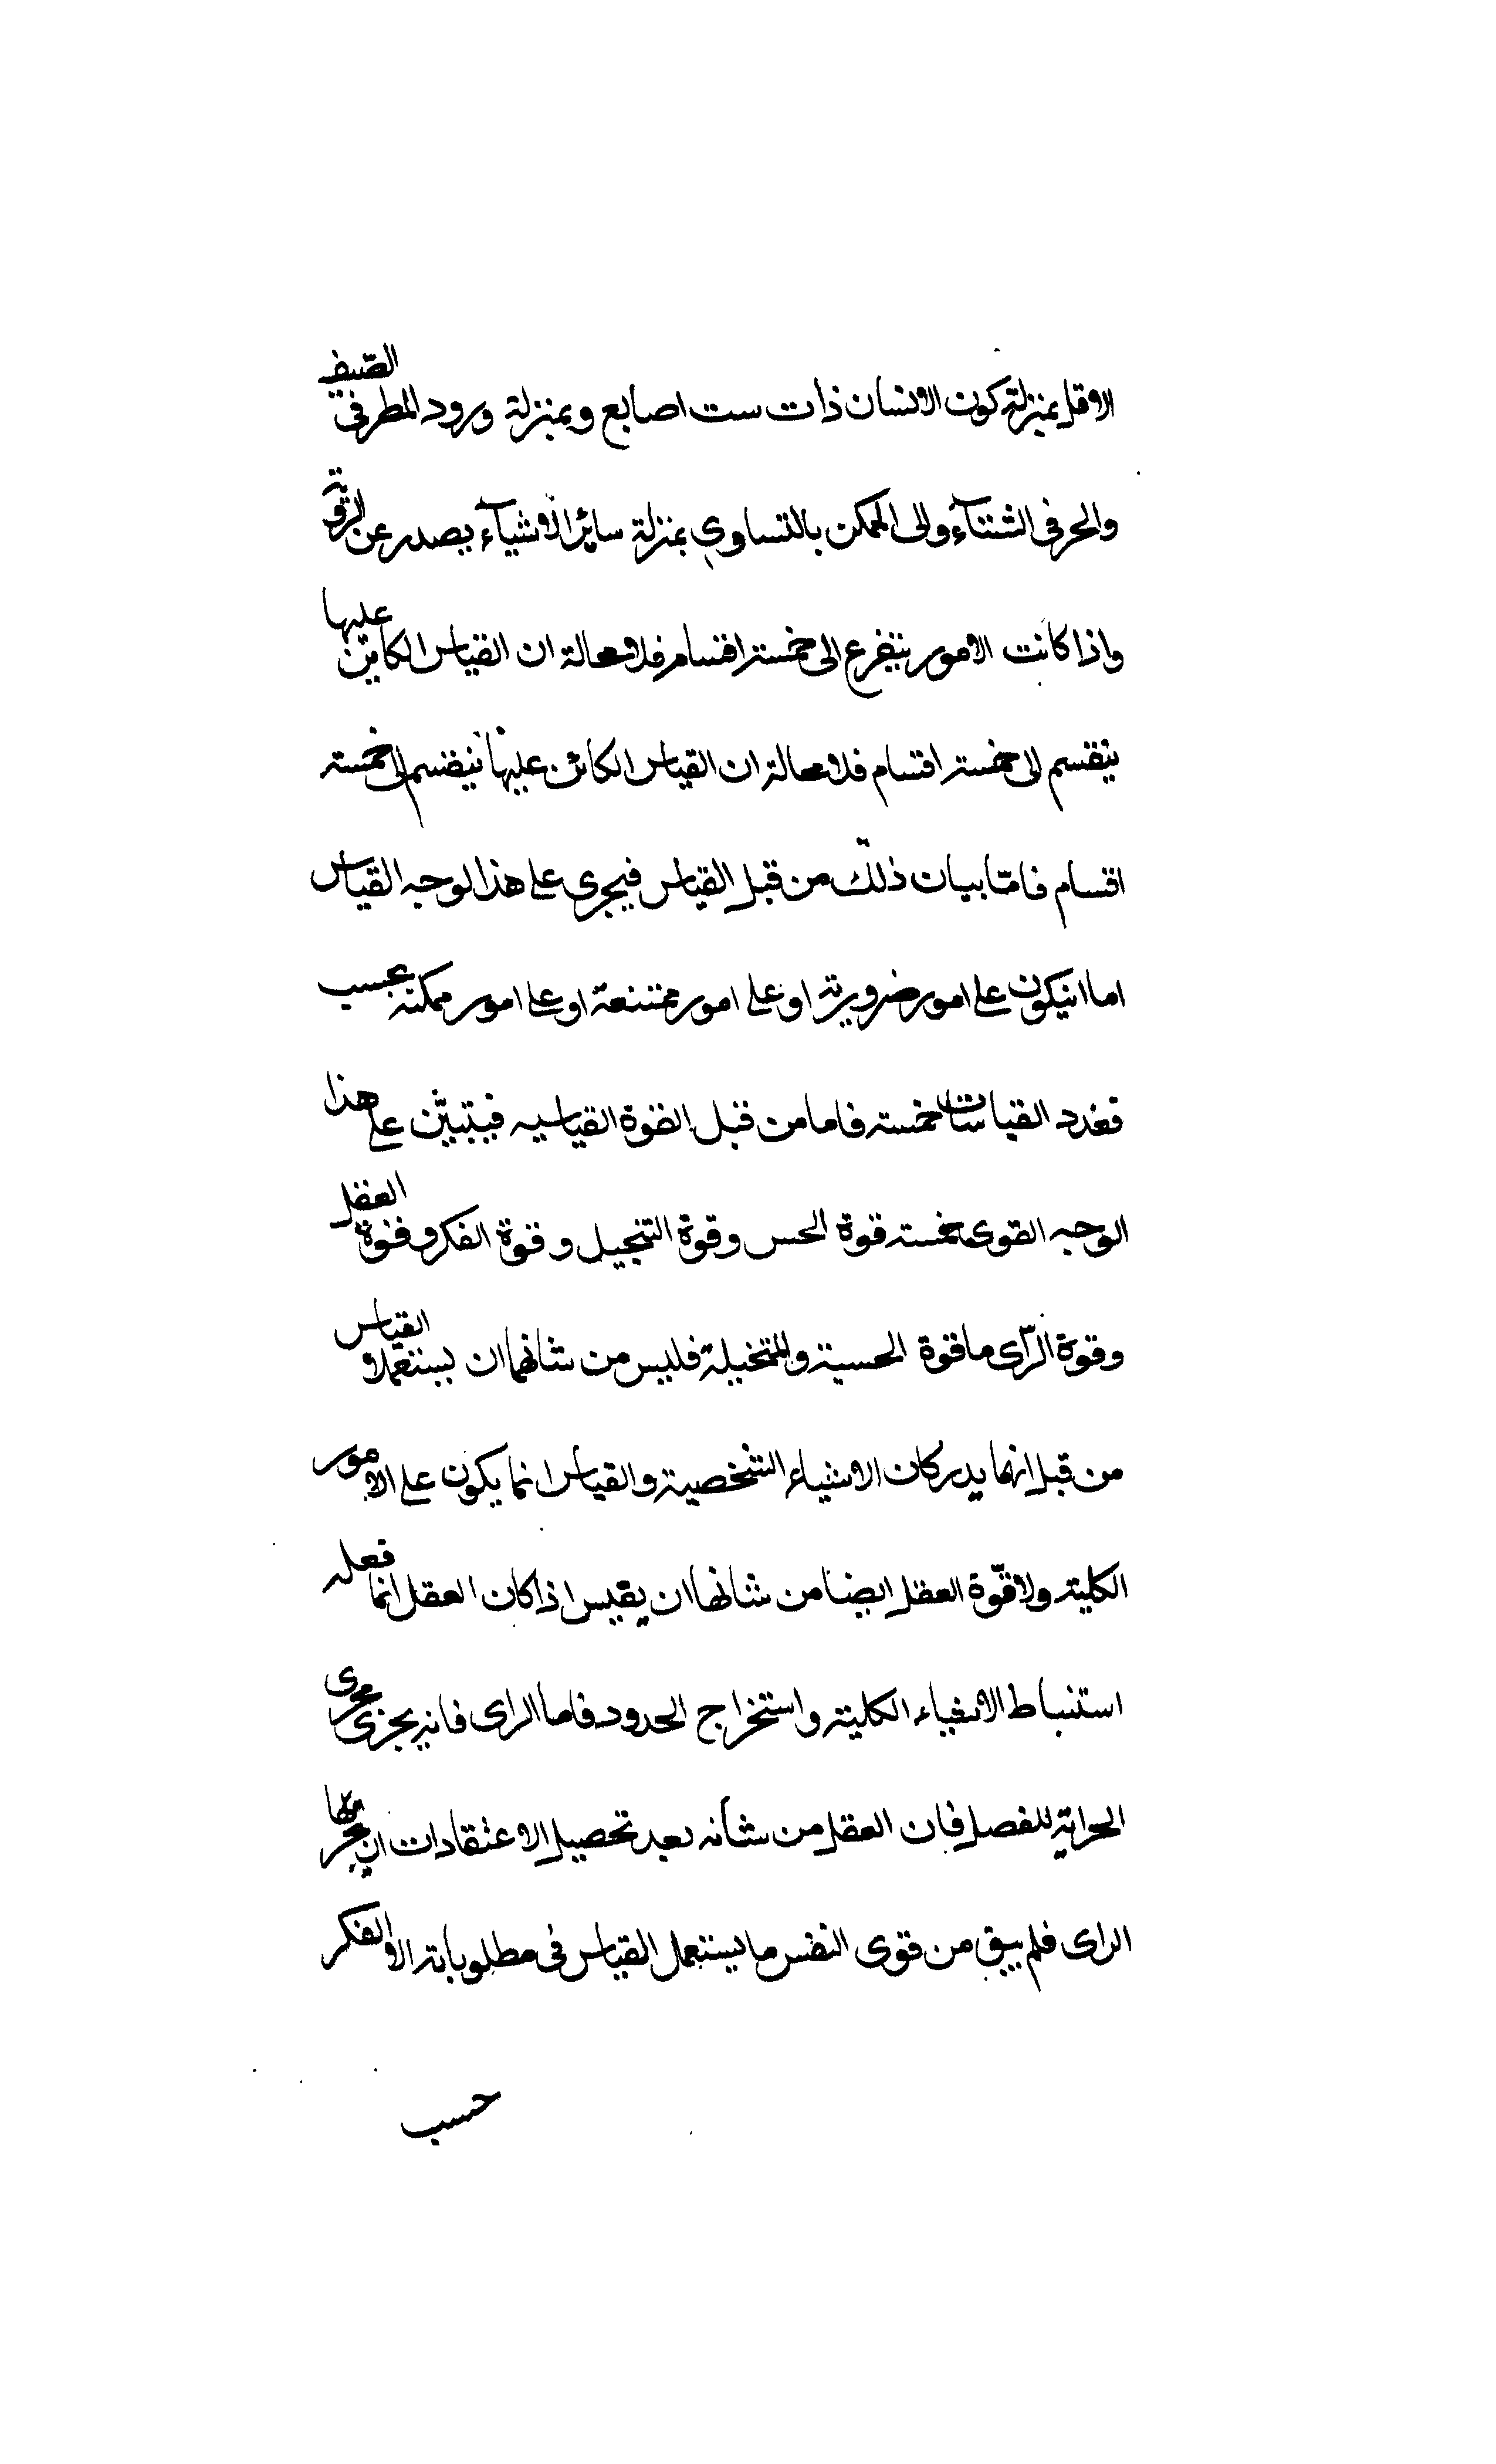 الاقل بمنزلة كون الانسان ذات ست اصابع وبمنزلة ورود المطر في الصيف
والحر في الشتآء والى الممكن بالتساوي بمنزلة سائر الاشيآء يصدر عن الروية
واذا كانت الامور يتفرع الى خمسة اقسام فلا محالة ان القياس الكاين عليها
ينقسم الى خمسة اقسام فلا محالة ان القياس الكائن عليها ينقسم الى خمسة
اقسام فامّا بيان ذلك من قبل القياس فيجرى على هذا الوجه القياس
اما انيكون على امور ضرورية او على امور ممتنعة او على امور ممكنة بحسب
فعدد القياسات خمسة فاما من قبل القوة القياسيه فيتبيّن على هذا
الوجه القوى خمسة قوة الحس وقوة التخيل وقوة الفكر وقوة العقل
وقوة الرّاى ما قوة الحسية والمتخيلة فليس من شانهما ان يستعملا القياس
من قبل انهما يدركان الاشياء الشخصية والقياس انما يكون على الامور
الكلية ولا قوّة العقل ايضا من شانها ان يقيس اذا كان العقل انما فعله
استنباط الاشياء الكلية واستخراج الحدود فاما الراى فانه يجرى مجرى
الحراية للفصل فان العقل من شأنه بعد تحصيل الاعتقادات ان
الراى فلم يبق من قوى النفس ما يستعمل القياس في مطلوباته الا الفكر
حسب